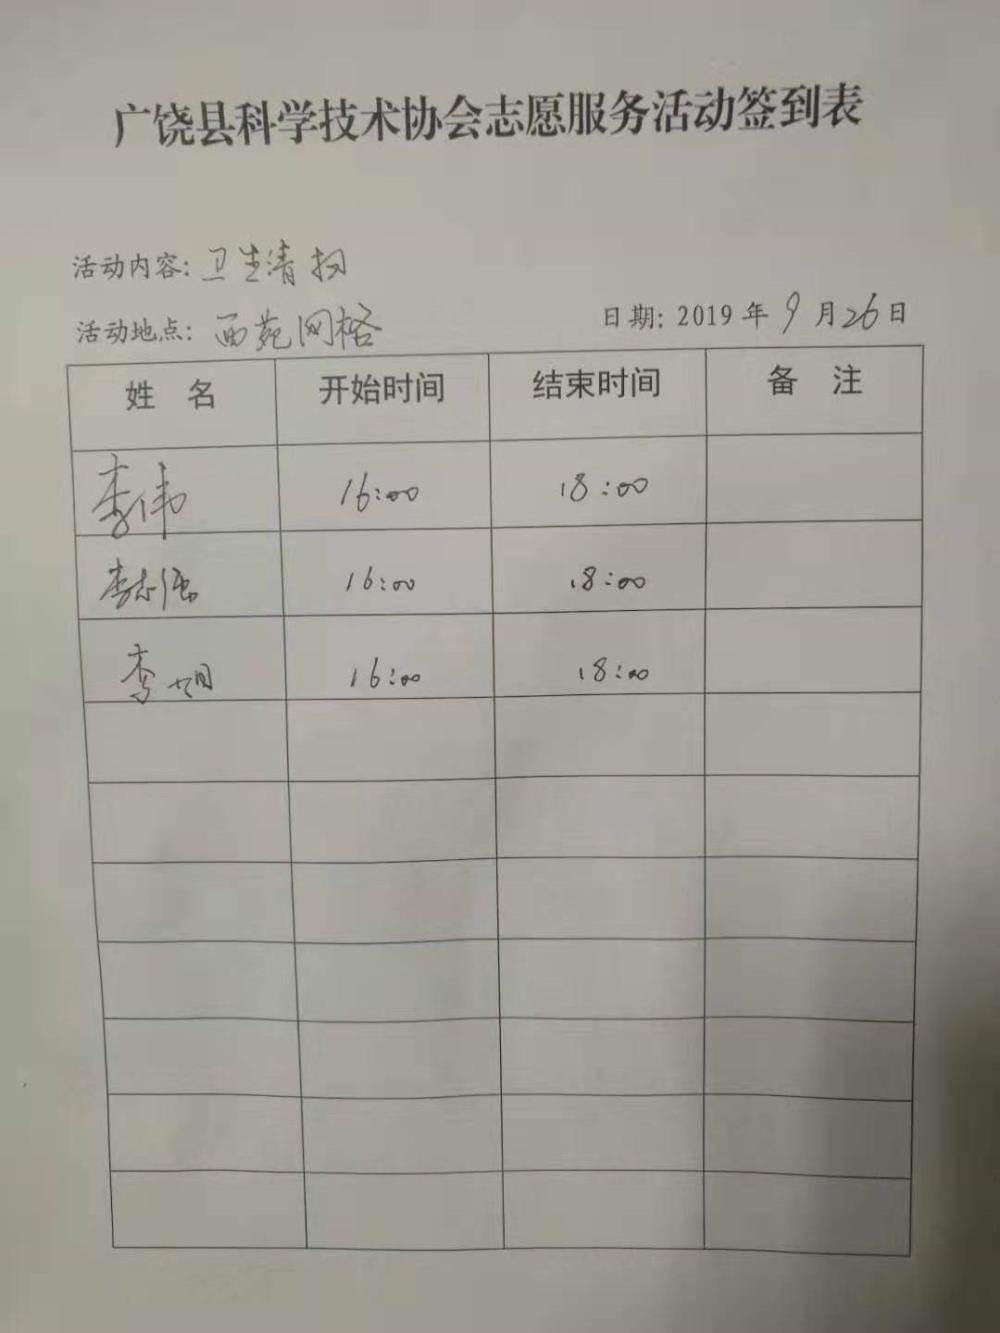 广饶县科学技术协会志愿服务活动签到表
活动内容: 卫生清扫
活动地点: 西苑网格 日期: 2019 年 9 月 26 日
姓 名 开始时间 结束时间 备 注
李伟 16:00 18:00
李志强 16:00 18:00
李 16:00 18:00